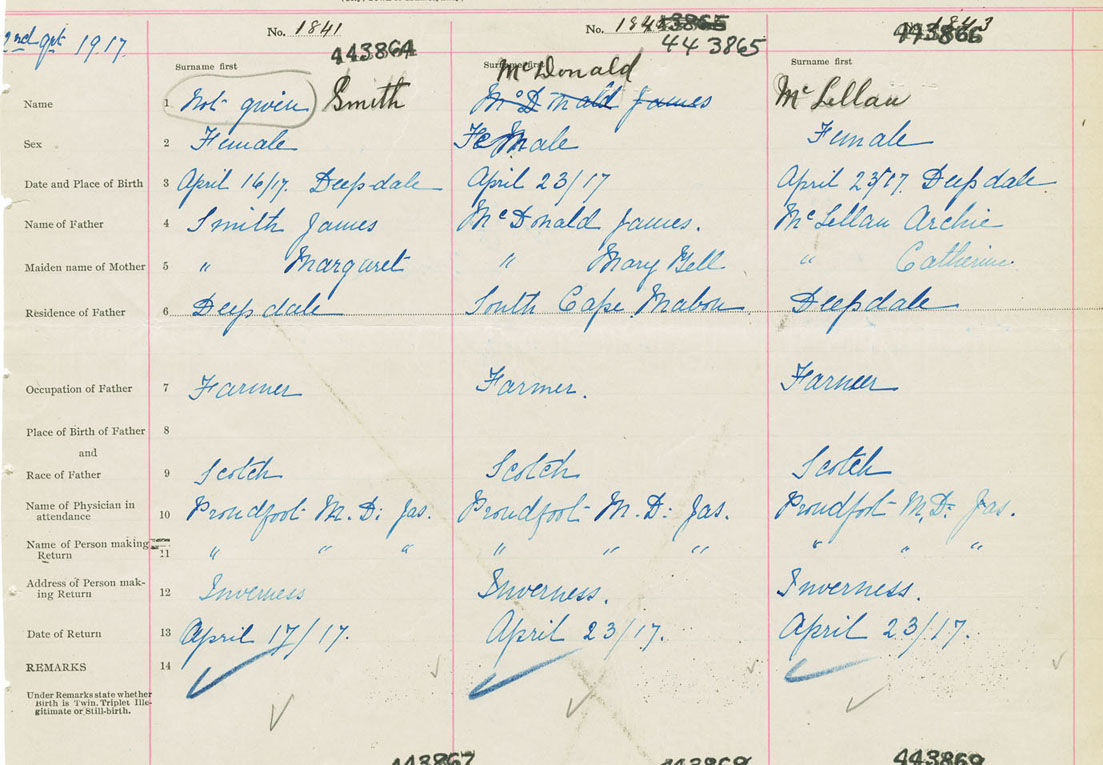 2nd qrt 1917
No. 1841
443864
No. 184
443865
44 3865
No. 1843
443866
Surname first
Surname first
Surname first
McDonald
Name 1 Not given Smith
McDonald James
McLellan
Sex 2 Female
Female
Female
Date and Place of Birth 3 April 16/17. Deepdale
April 23/17
April 23/17. Deepdale
Name of Father 4 Smith James
McDonald James.
McLellan Archie
Maiden name of Mother 5 " Margaret
" Mary Bell
" Catherine
Residence of Father 6 Deepdale
South Cape Mabou
Deepdale
Occupation of Father 7 Farmer
Farmer.
Farmer
Place of Birth of Father 8
and
Race of Father 9 Scotch
Scotch
Scotch
Name of Physician in
attendance 10 Proudfoot M. D: Jas.
Proudfoot M. D: Jas.
Proudfoot M. D: Jas.
Name of Person making
Return 11 " " "
" " "
" " "
Address of Person mak-
ing Return 12 Inverness
Inverness.
Inverness.
Date of Return 13 April 17/17.
April 23/17.
April 23/17.
REMARKS 14
Under Remarks state whether
Birth is Twin. Triplet Ille-
gitimate or Still-birth.
443867
443869